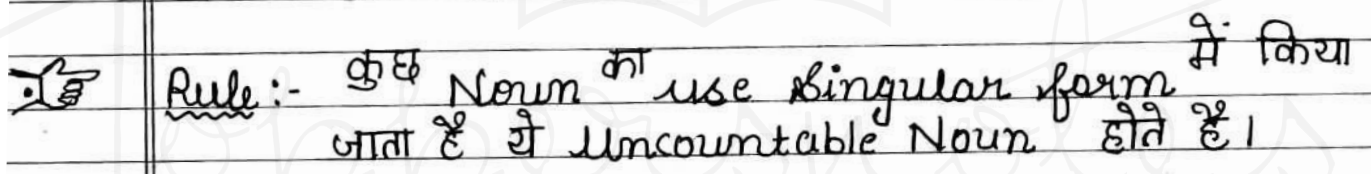 Rule :- कुछ Noun का use Singular form में किया
जाता है ये Uncountable Noun होते हैं।